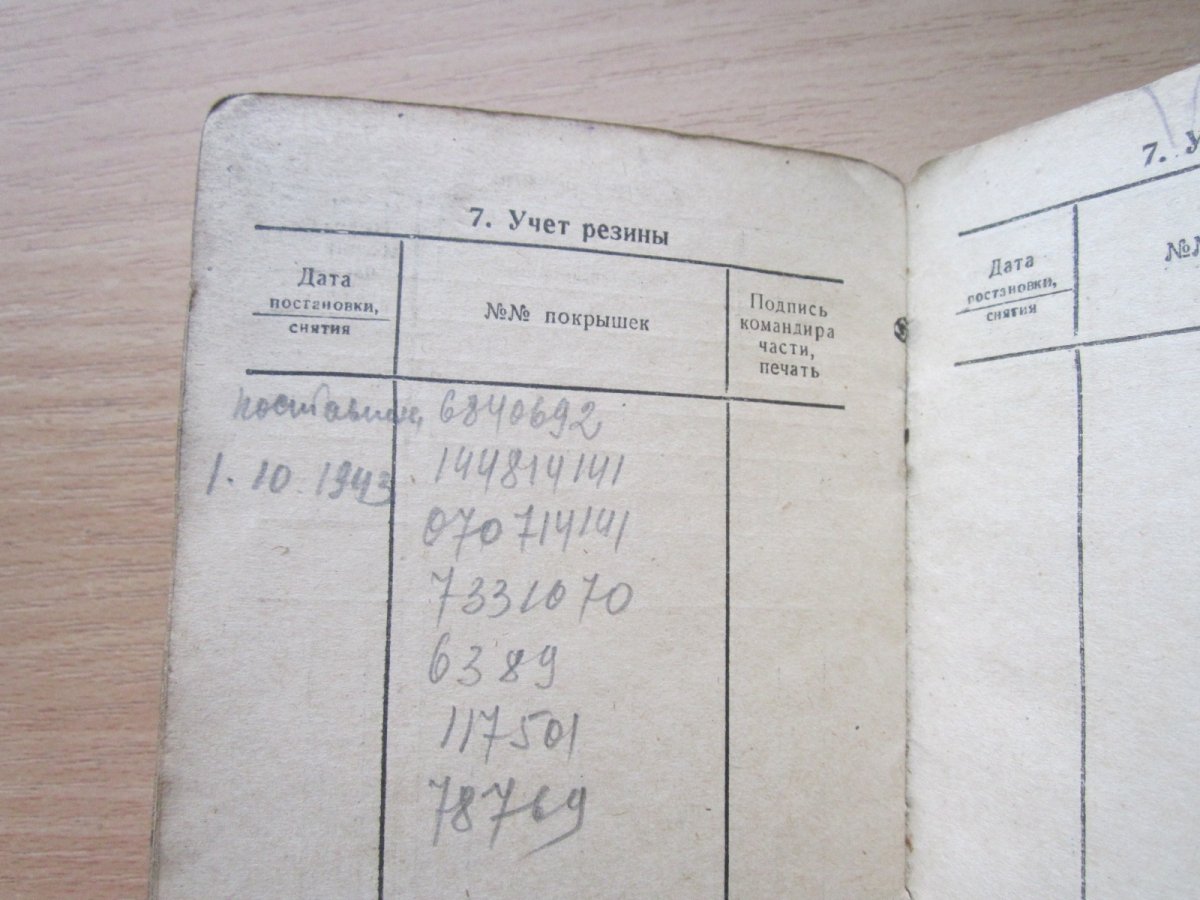 7. Учет резины
Дата
постановки,
снятия
№№ покрышек
Подпись
командира
части,
печать
6840692
1.10.1943
144814141
070714141
7331070
6389
117501
78769
7. У
Дата
постановки,
снятия
№№